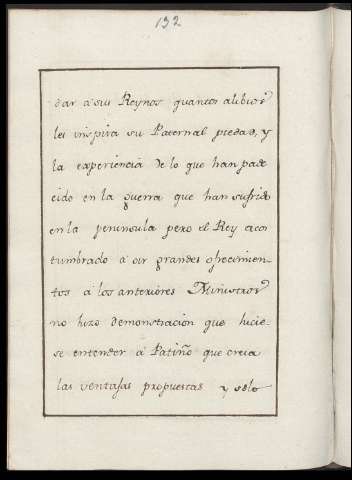 132
dar a sus Reynos quantos alibios
les inspira su Paternal piedad, y
la experiencia de lo que han pade
cido en la guerra que han sufrido
en la peninsula pero el Rey acos
tumbrado á oir grandes ofrecimien-
tos á los anteriores Ministros
no hizo demostracion que hicie-
se entender á Patiño que creia
las ventajas propuestas y solo